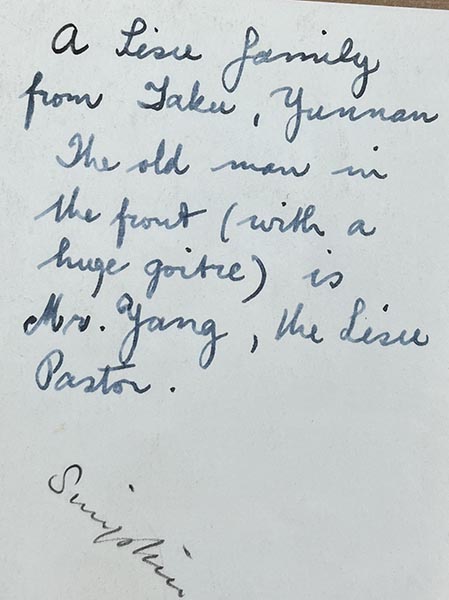 A Lisu family
from Taku, Yunnan
The old man in
the front (with a
huge goitre) is
Mr. Yang, the Lisu
Pastor.
Simpkin